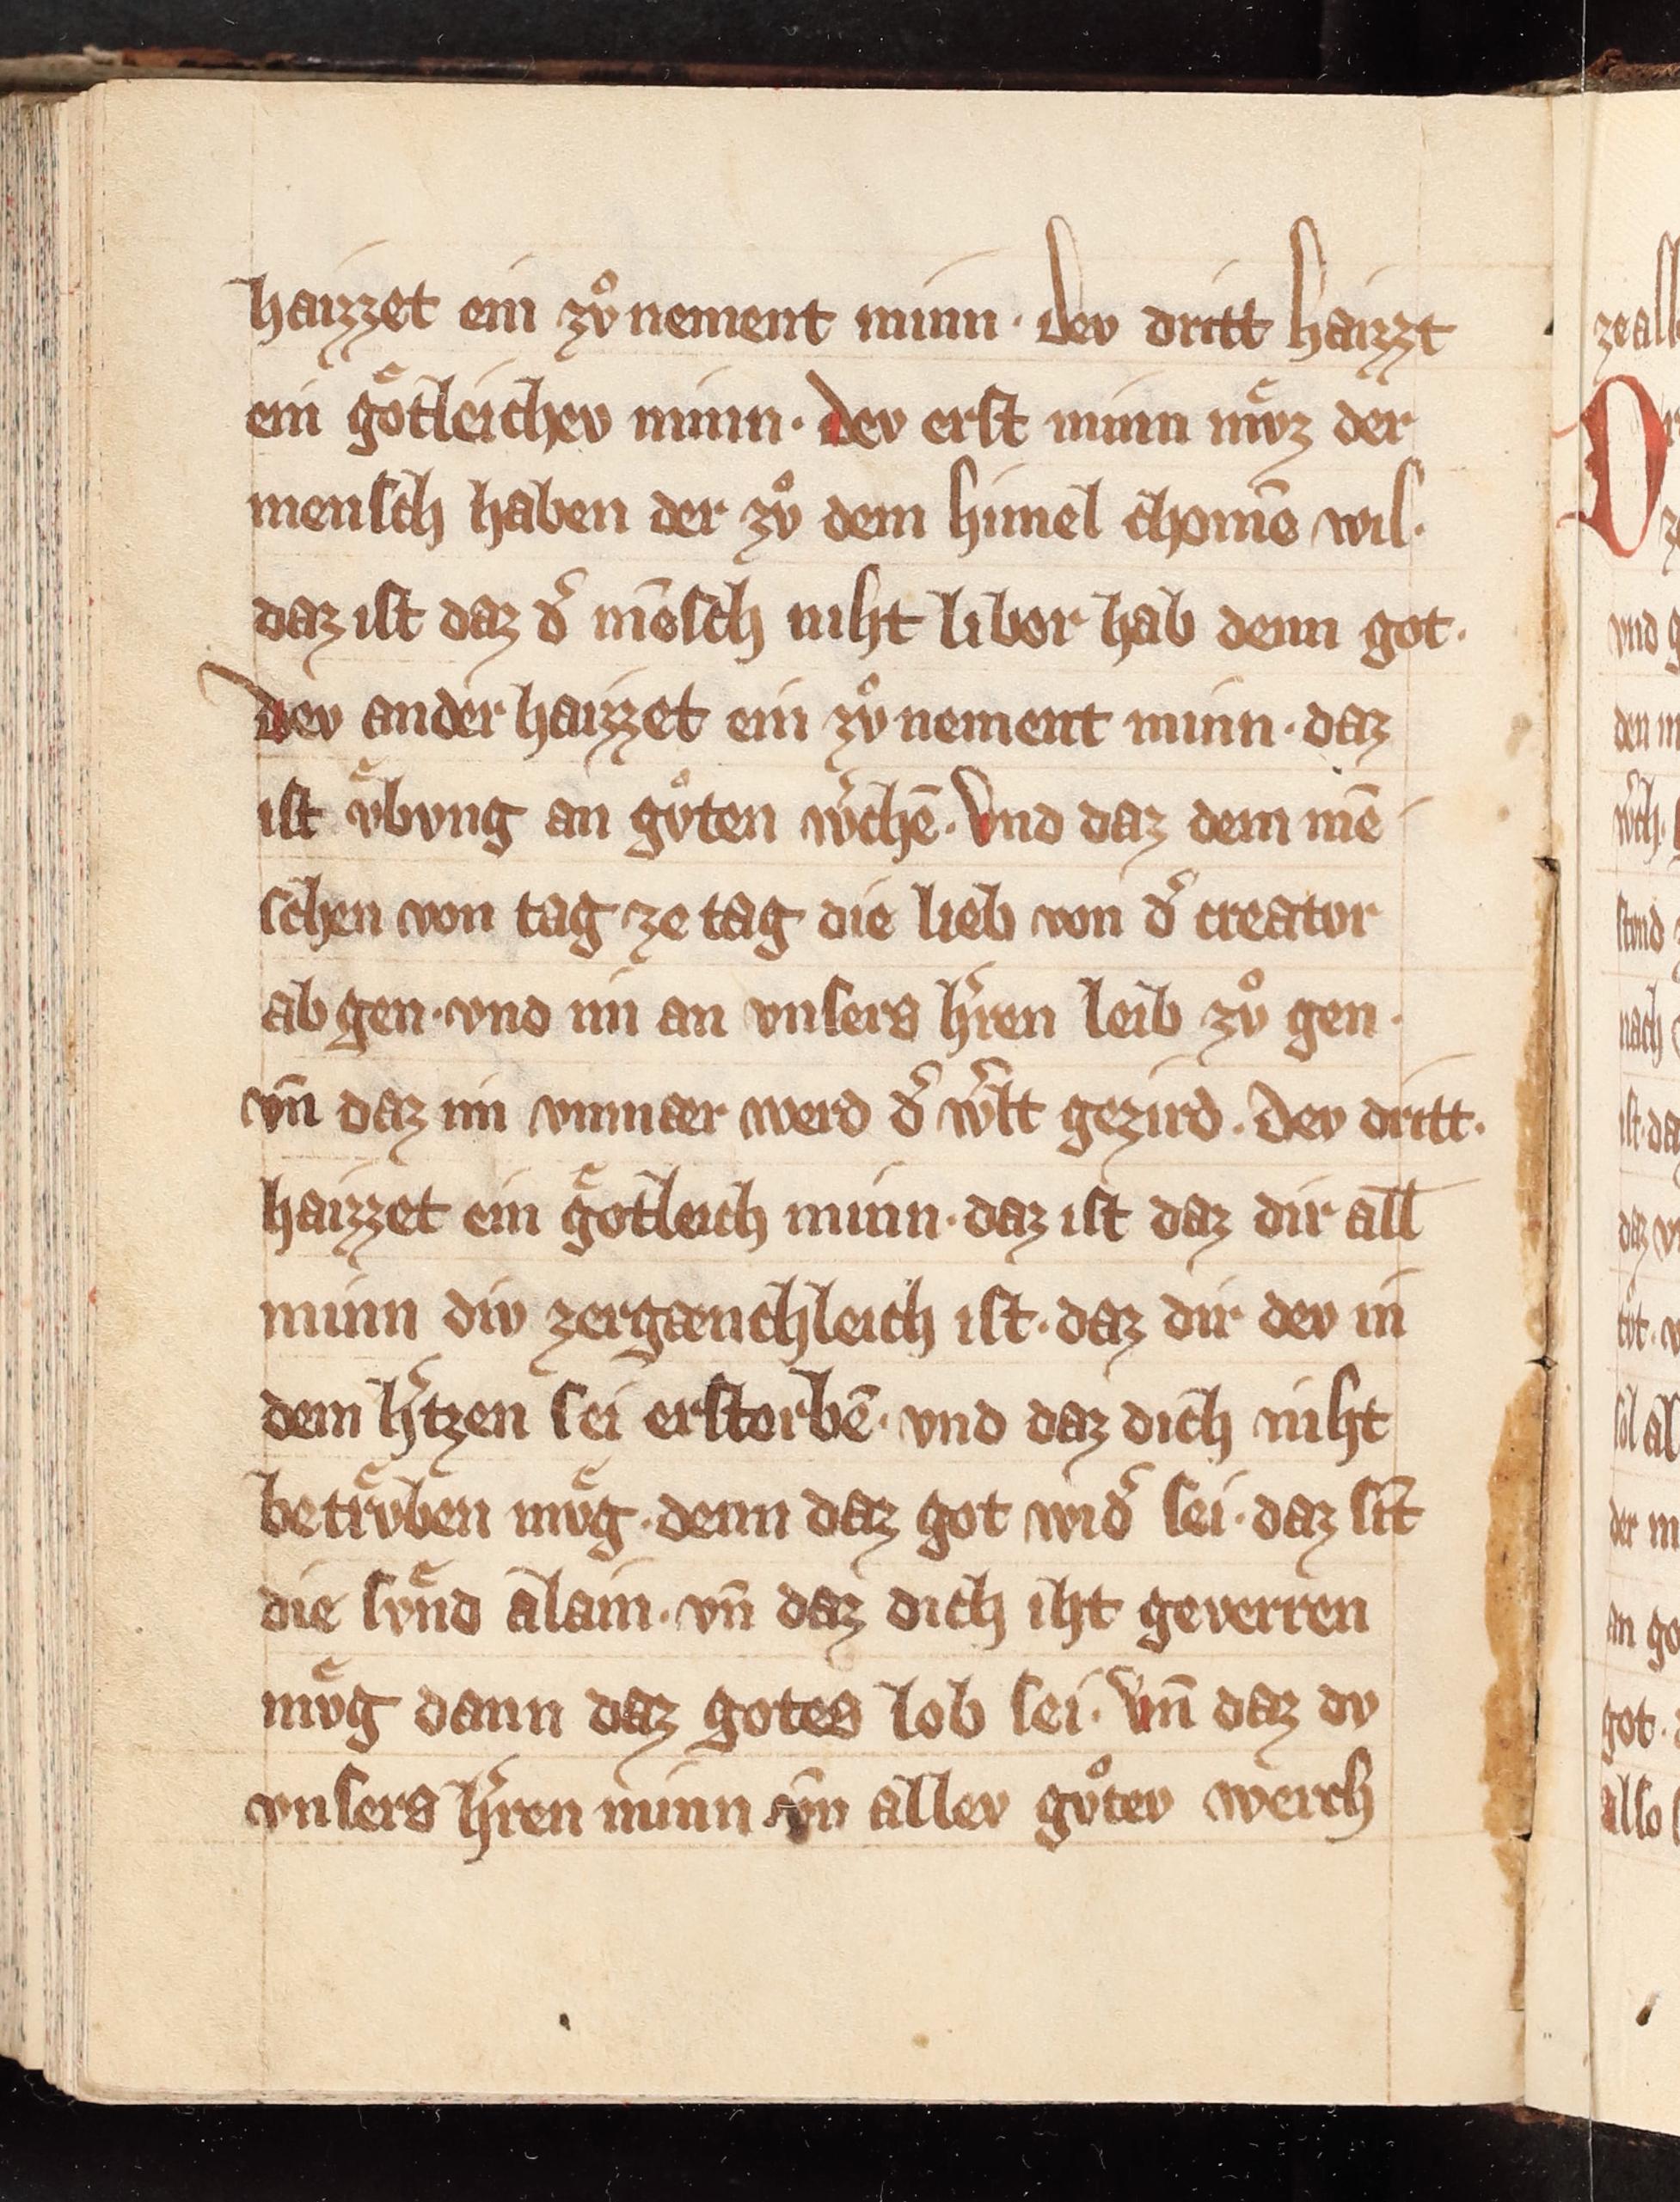 haizzet ein zvͦnement minn · Dev dritt haizzt
ein goͤtleichev minn · Dev erst minn mvͤz der
mensch haben der zvͦ dem himel chomē wil ·
daz ist daz dˀ mēsch niht liber hab denn got ·
Dev ander haizzet ein zvͦnement minn · daz
ist vͤbvng an gvͦten wˀchē · Vnd daz dem mē
schen von tag ze tag die lieb von dˀ creatvr
ab gen · vnd im an vnsers hˀren leib zvͦ gen ·
vn̄ daz im vnmaer werd dˀ wˀlt gezird · Dev dritt ·
haizzet ein goͤtleich minn · daz ist daz dir all
minn div zergaenchleich ist · daz dir dev in
dem hˀtzen sei erstorbē · vnd daz dich niht
betrvͤben mvͤg · denn daz got widˀ sei · daz sīt
die svͤnd alain · vn̄ daz dich iht geverren
mvͤg dann daz gotes lob sei · Vn̄ daz dv
vnsers hˀren minn vn̄ aller gvͦtev werch
zeall
D
vnd g
den m
wˀch ·
stvnd
nach
ist · da
daz v
tvͦt · v
sol al
der m
an go
got · d
also